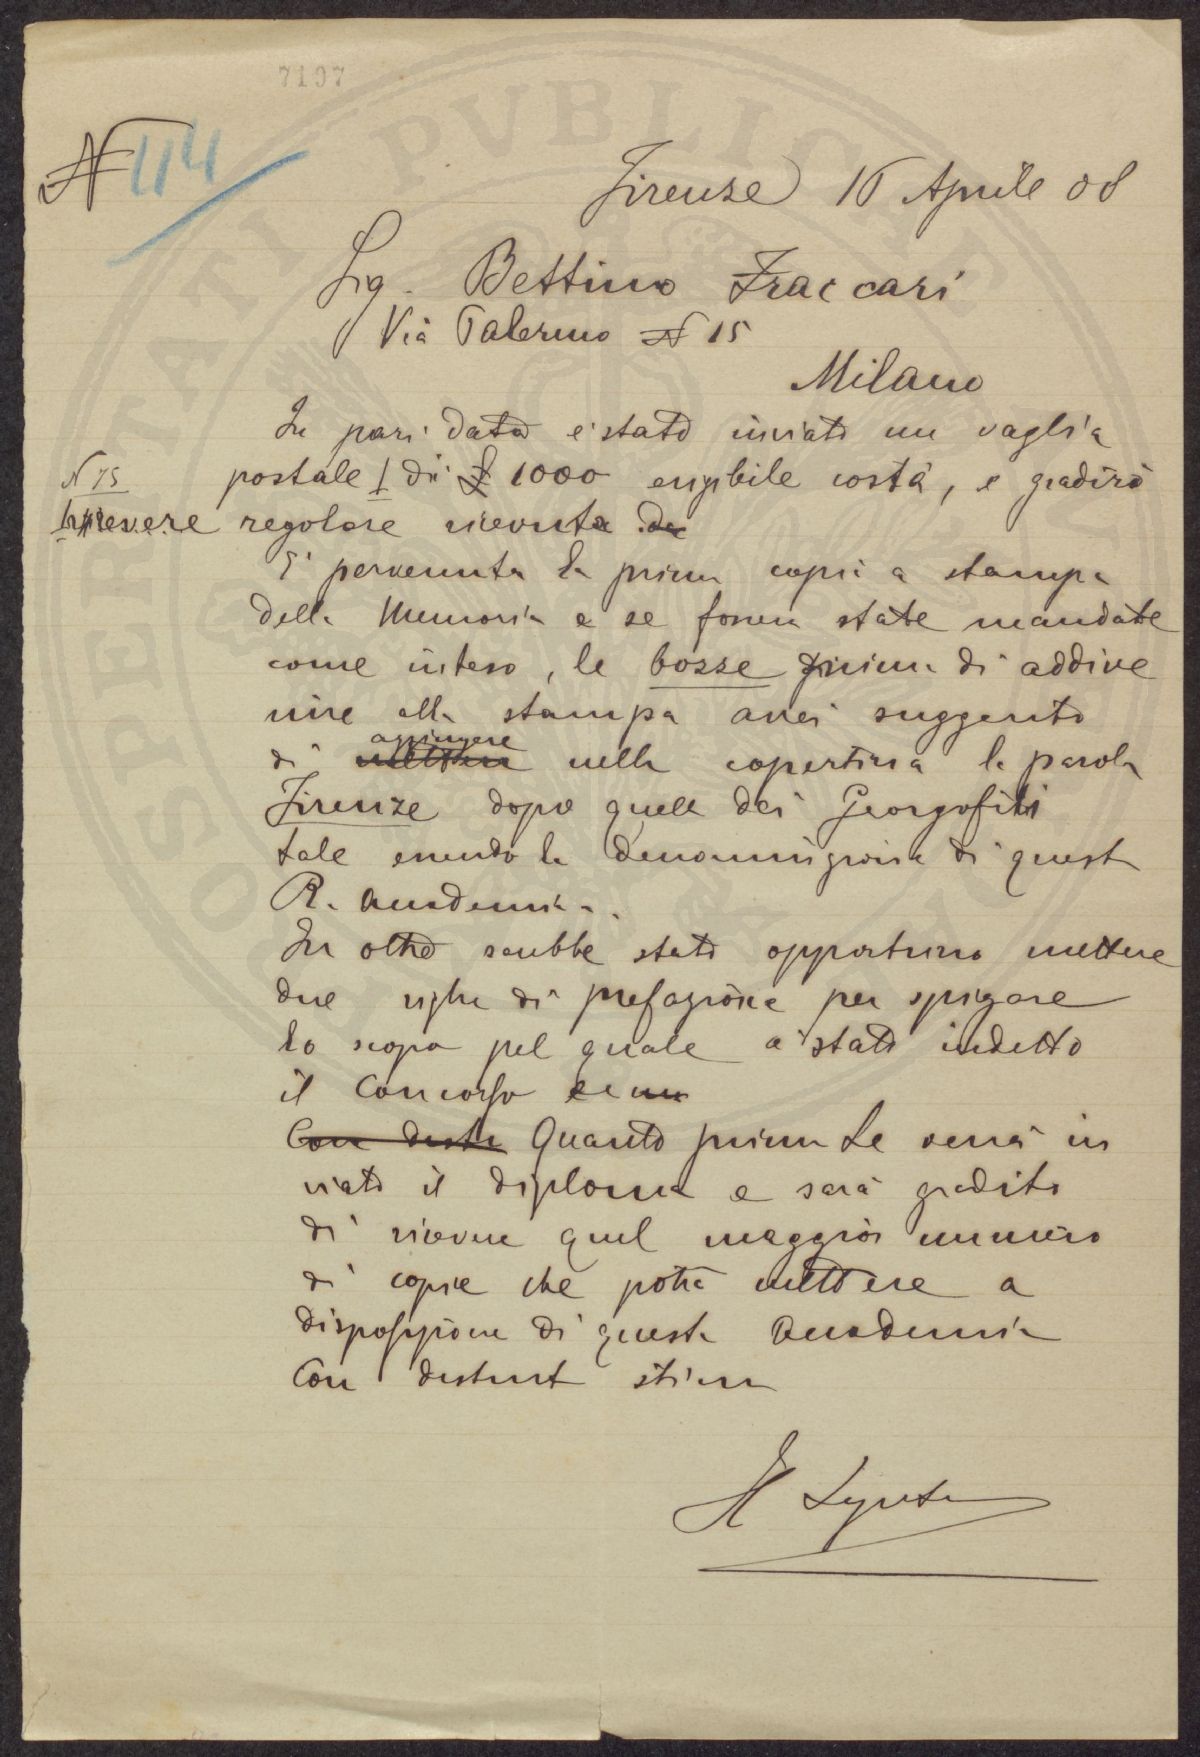 7107
N 114
Firenze 16 Aprile 08
Sig. Bettino Fraccari
Via Palermo N 15
Milano
In pari data è stato inviato un vaglia
N 75
postale di £ 1000 esigibile costà, e gradirò
regolare ricevuta
E' pervenuta la prima copia a stampa
della Memoria e se fossero state mandate
come inteso, le bozze prima di addive
nire alla stampa avrei suggerito
aggiungere
di mettere nella copertina la parola
Firenze dopo quella dei Georgofili
tale essendo la denominazione di questa
R. Accademia.
In oltre sarebbe stato opportuno mettere
due righe di prefazione per spigare
lo scopo pel quale è stato indetto
il Concorso
Con dist. Quanto prima Le verrà in
viato il diploma e sarà gradito
di ricevere quel maggior numero
di copie che potrà mettere a
disposizione di questa Accademia
Con distint stima